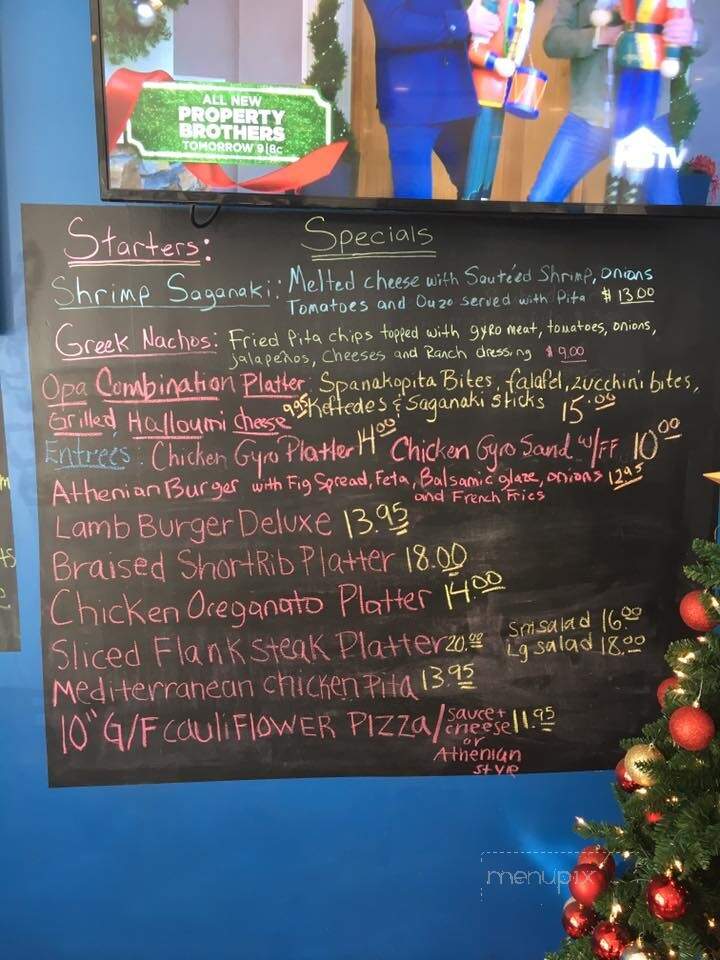 ALL NEW
PROPERTY
BROTHERS
TOMORROW 9|8c
HGTV
Starters: Specials
Shrimp Saganaki: Melted cheese with Sautéed Shrimp, onions
Tomatoes and Ouzo served with Pita $13.00
Greek Nachos: Fried Pita chips topped with gyro meat, tomatoes, onions,
jalapeños, Cheeses and Ranch dressing $9.00
Opa Combination Platter: Spanakopita Bites, falafel, zucchini bites,
Keftedes & Saganaki sticks 15.00
Grilled Halloumi cheese 9.95
Entreés: Chicken Gyro Platter 14.00 Chicken Gyro Sand w/FF 10.00
Athenian Burger with Fig Spread, Feta, Balsamic glaze, onions 12.95
and French Fries
Lamb Burger Deluxe 13.95
Braised Short Rib Platter 18.00
Chicken Oreganato Platter 14.00
Sliced Flank steak Platter 20.00
Sm salad 16.00
Lg salad 18.00
Mediterranean chicken Pita 13.95
10" G/F cauliFLOWER PIZZA/sauce+
cheese 11.95
or
Athenian
style
menupix